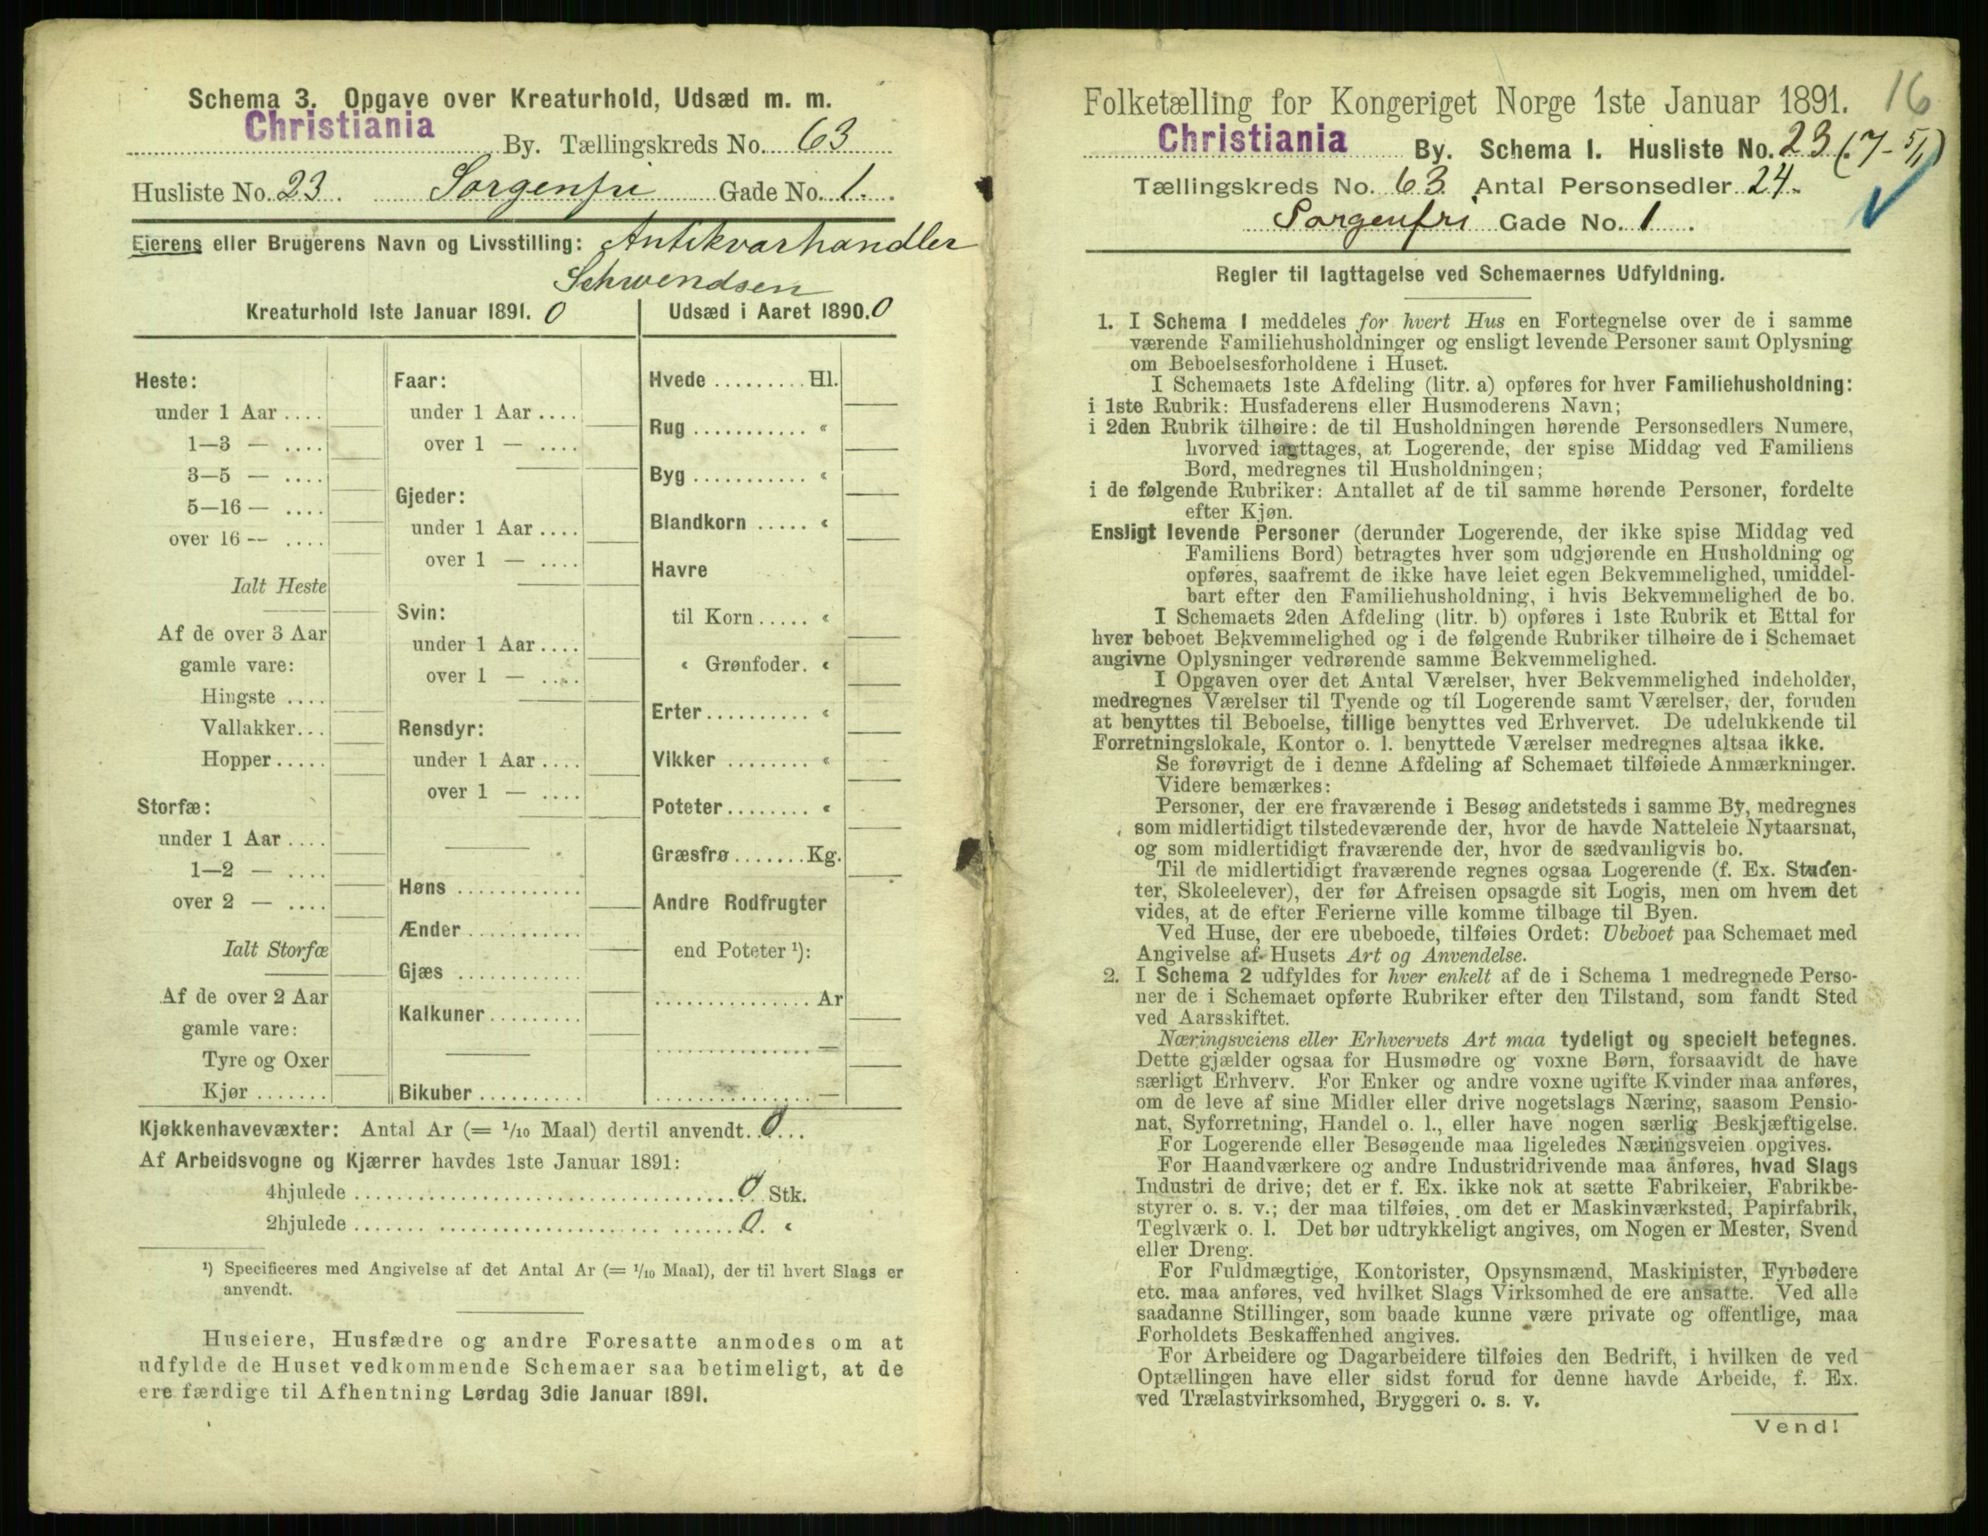 Schema 3. Opgave over Kreaturhold, Udsæd m. m.
Christiania By. Tællingskreds No. 63
Husliste No. 23. Sorgenfri Gade No. 1.
Eierens eller Brugerens Navn og Livsstilling: Antikvarhandler
Schwendsen
Kreaturhold 1ste Januar 1891. 0
Heste:
under 1 Aar ....
1—3 — ....
3—5 — ....
5—16 — ....
over 16 — ....
Ialt Heste
Af de over 3 Aar
gamle vare:
Hingste ....
Vallakker...
Hopper.....
Storfæ:
under 1 Aar ....
1—2 — ....
over 2 — ....
Ialt Storfæ
Af de over 2 Aar
gamle vare:
Tyre og Oxer
Kjør .......
Faar:
under 1 Aar ....
over 1 — ....
Gjeder:
under 1 Aar ....
over 1 — ....
Svin:
under 1 Aar ....
over 1 — ....
Rensdyr:
under 1 Aar ....
over 1 — ....
Høns ............
Ænder ...........
Gjæs ............
Kalkuner.........
Bikuber ..........
Udsæd i Aaret 1890. 0
Hvede ......... Hl.
Rug ........... «
Byg ........... «
Blandkorn ..... «
Havre
til Korn ..... «
« Grønfoder. «
Erter.......... «
Vikker ........ «
Poteter........ «
Græsfrø ....... Kg.
Andre Rodfrugter
end Poteter ¹):
............... Ar
............... —
............... —
Kjøkkenhavevæxter: Antal Ar (= 1/10 Maal) dertil anvendt. 0...
Af Arbeidsvogne og Kjærrer havdes 1ste Januar 1891:
4hjulede .................................... 0 Stk.
2hjulede .................................... 0. «
¹) Specificeres med Angivelse af det Antal Ar (= 1/10 Maal), der til hvert Slags er
anvendt.
Huseiere, Husfædre og andre Foresatte anmodes om at
udfylde de Huset vedkommende Schemaer saa betimeligt, at de
ere færdige til Afhentning Lørdag 3die Januar 1891.
Folketælling for Kongeriget Norge 1ste Januar 1891. 16
Christiania By. Schema 1. Husliste No. 23 (7-5/1)
Tællingskreds No. 63 Antal Personsedler 24.
Sorgenfri Gade No. 1.
Regler til Iagttagelse ved Schemaernes Udfyldning.
1. I Schema 1 meddeles for hvert Hus en Fortegnelse over de i samme
værende Familiehusholdninger og ensligt levende Personer samt Oplysning
om Beboelsesforholdene i Huset.
I Schemaets 1ste Afdeling (litr. a) opføres for hver Familiehusholdning:
i 1ste Rubrik: Husfaderens eller Husmoderens Navn;
i 2den Rubrik tilhøire: de til Husholdningen hørende Personsedlers Numere,
hvorved iagttages, at Logerende, der spise Middag ved Familiens
Bord, medregnes til Husholdningen;
i de følgende Rubriker: Antallet af de til samme hørende Personer, fordelte
efter Kjøn.
Ensligt levende Personer (derunder Logerende, der ikke spise Middag ved
Familiens Bord) betragtes hver som udgjørende en Husholdning og
opføres, saafremt de ikke have leiet egen Bekvemmelighed, umiddel-
bart efter den Familiehusholdning, i hvis Bekvemmelighed de bo.
I Schemaets 2den Afdeling (litr. b) opføres i 1ste Rubrik et Ettal for
hver beboet Bekvemmelighed og i de følgende Rubriker tilhøire de i Schemaet
angivne Oplysninger vedrørende samme Bekvemmelighed.
I Opgaven over det Antal Værelser, hver Bekvemmelighed indeholder,
medregnes Værelser til Tyende og til Logerende samt Værelser, der, foruden
at benyttes til Beboelse, tillige benyttes ved Erhvervet. De udelukkende til
Forretningslokale, Kontor o. l. benyttede Værelser medregnes altsaa ikke.
Se forøvrigt de i denne Afdeling af Schemaet tilføiede Anmærkninger.
Videre bemærkes:
Personer, der ere fraværende i Besøg andetsteds i samme By, medregnes
som midlertidigt tilstedeværende der, hvor de havde Natteleie Nytaarsnat,
og som midlertidigt fraværende der, hvor de sædvanligvis bo.
Til de midlertidigt fraværende regnes ogsaa Logerende (f. Ex. Studen-
ter, Skoleelever), der før Afreisen opsagde sit Logis, men om hvem det
vides, at de efter Ferierne ville komme tilbage til Byen.
Ved Huse, der ere ubeboede, tilføies Ordet: Ubeboet paa Schemaet med
Angivelse af Husets Art og Anvendelse.
2. I Schema 2 udfyldes for hver enkelt af de i Schema 1 medregnede Perso-
ner de i Schemaet opførte Rubriker efter den Tilstand, som fandt Sted
ved Aarsskiftet.
Næringsveiens eller Erhvervets Art maa tydeligt og specielt betegnes.
Dette gjælder ogsaa for Husmødre og voxne Børn, forsaavidt de have
særligt Erhverv. For Enker og andre voxne ugifte Kvinder maa anføres,
om de leve af sine Midler eller drive nogetslags Næring, saasom Pensio-
nat, Syforretning, Handel o. l., eller have nogen særlig Beskjæftigelse.
For Logerende eller Besøgende maa ligeledes Næringsveien opgives.
For Haandværkere og andre Industridrivende maa anføres, hvad Slags
Industri de drive; det er f. Ex. ikke nok at sætte Fabrikeier, Fabrikbe-
styrer o. s. v.; der maa tilføies, om det er Maskinværksted, Papirfabrik,
Teglværk o. l. Det bør udtrykkeligt angives, om Nogen er Mester, Svend
eller Dreng.
For Fuldmægtige, Kontorister, Opsynsmænd, Maskinister, Fyrbødere
etc. maa anføres, ved hvilket Slags Virksomhed de ere ansatte. Ved alle
saadanne Stillinger, som baade kunne være private og offentlige, maa
Forholdets Beskaffenhed angives.
For Arbeidere og Dagarbeidere tilføies den Bedrift, i hvilken de ved
Optællingen have eller sidst forud for denne havde Arbeide, f. Ex.
ved Trælastvirksomhed, Bryggeri o. s. v.
Vend!